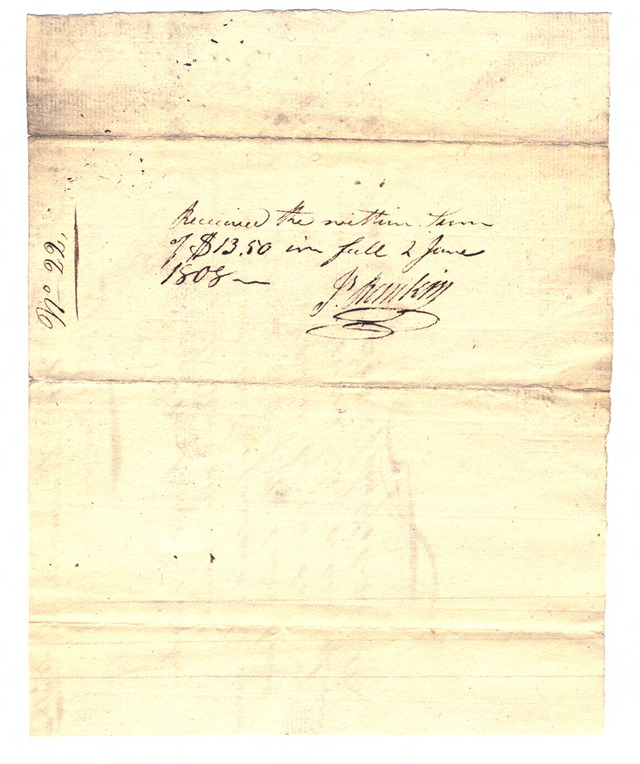 Received the within sum
of $13.50 in full 2 June
1808
No 22,